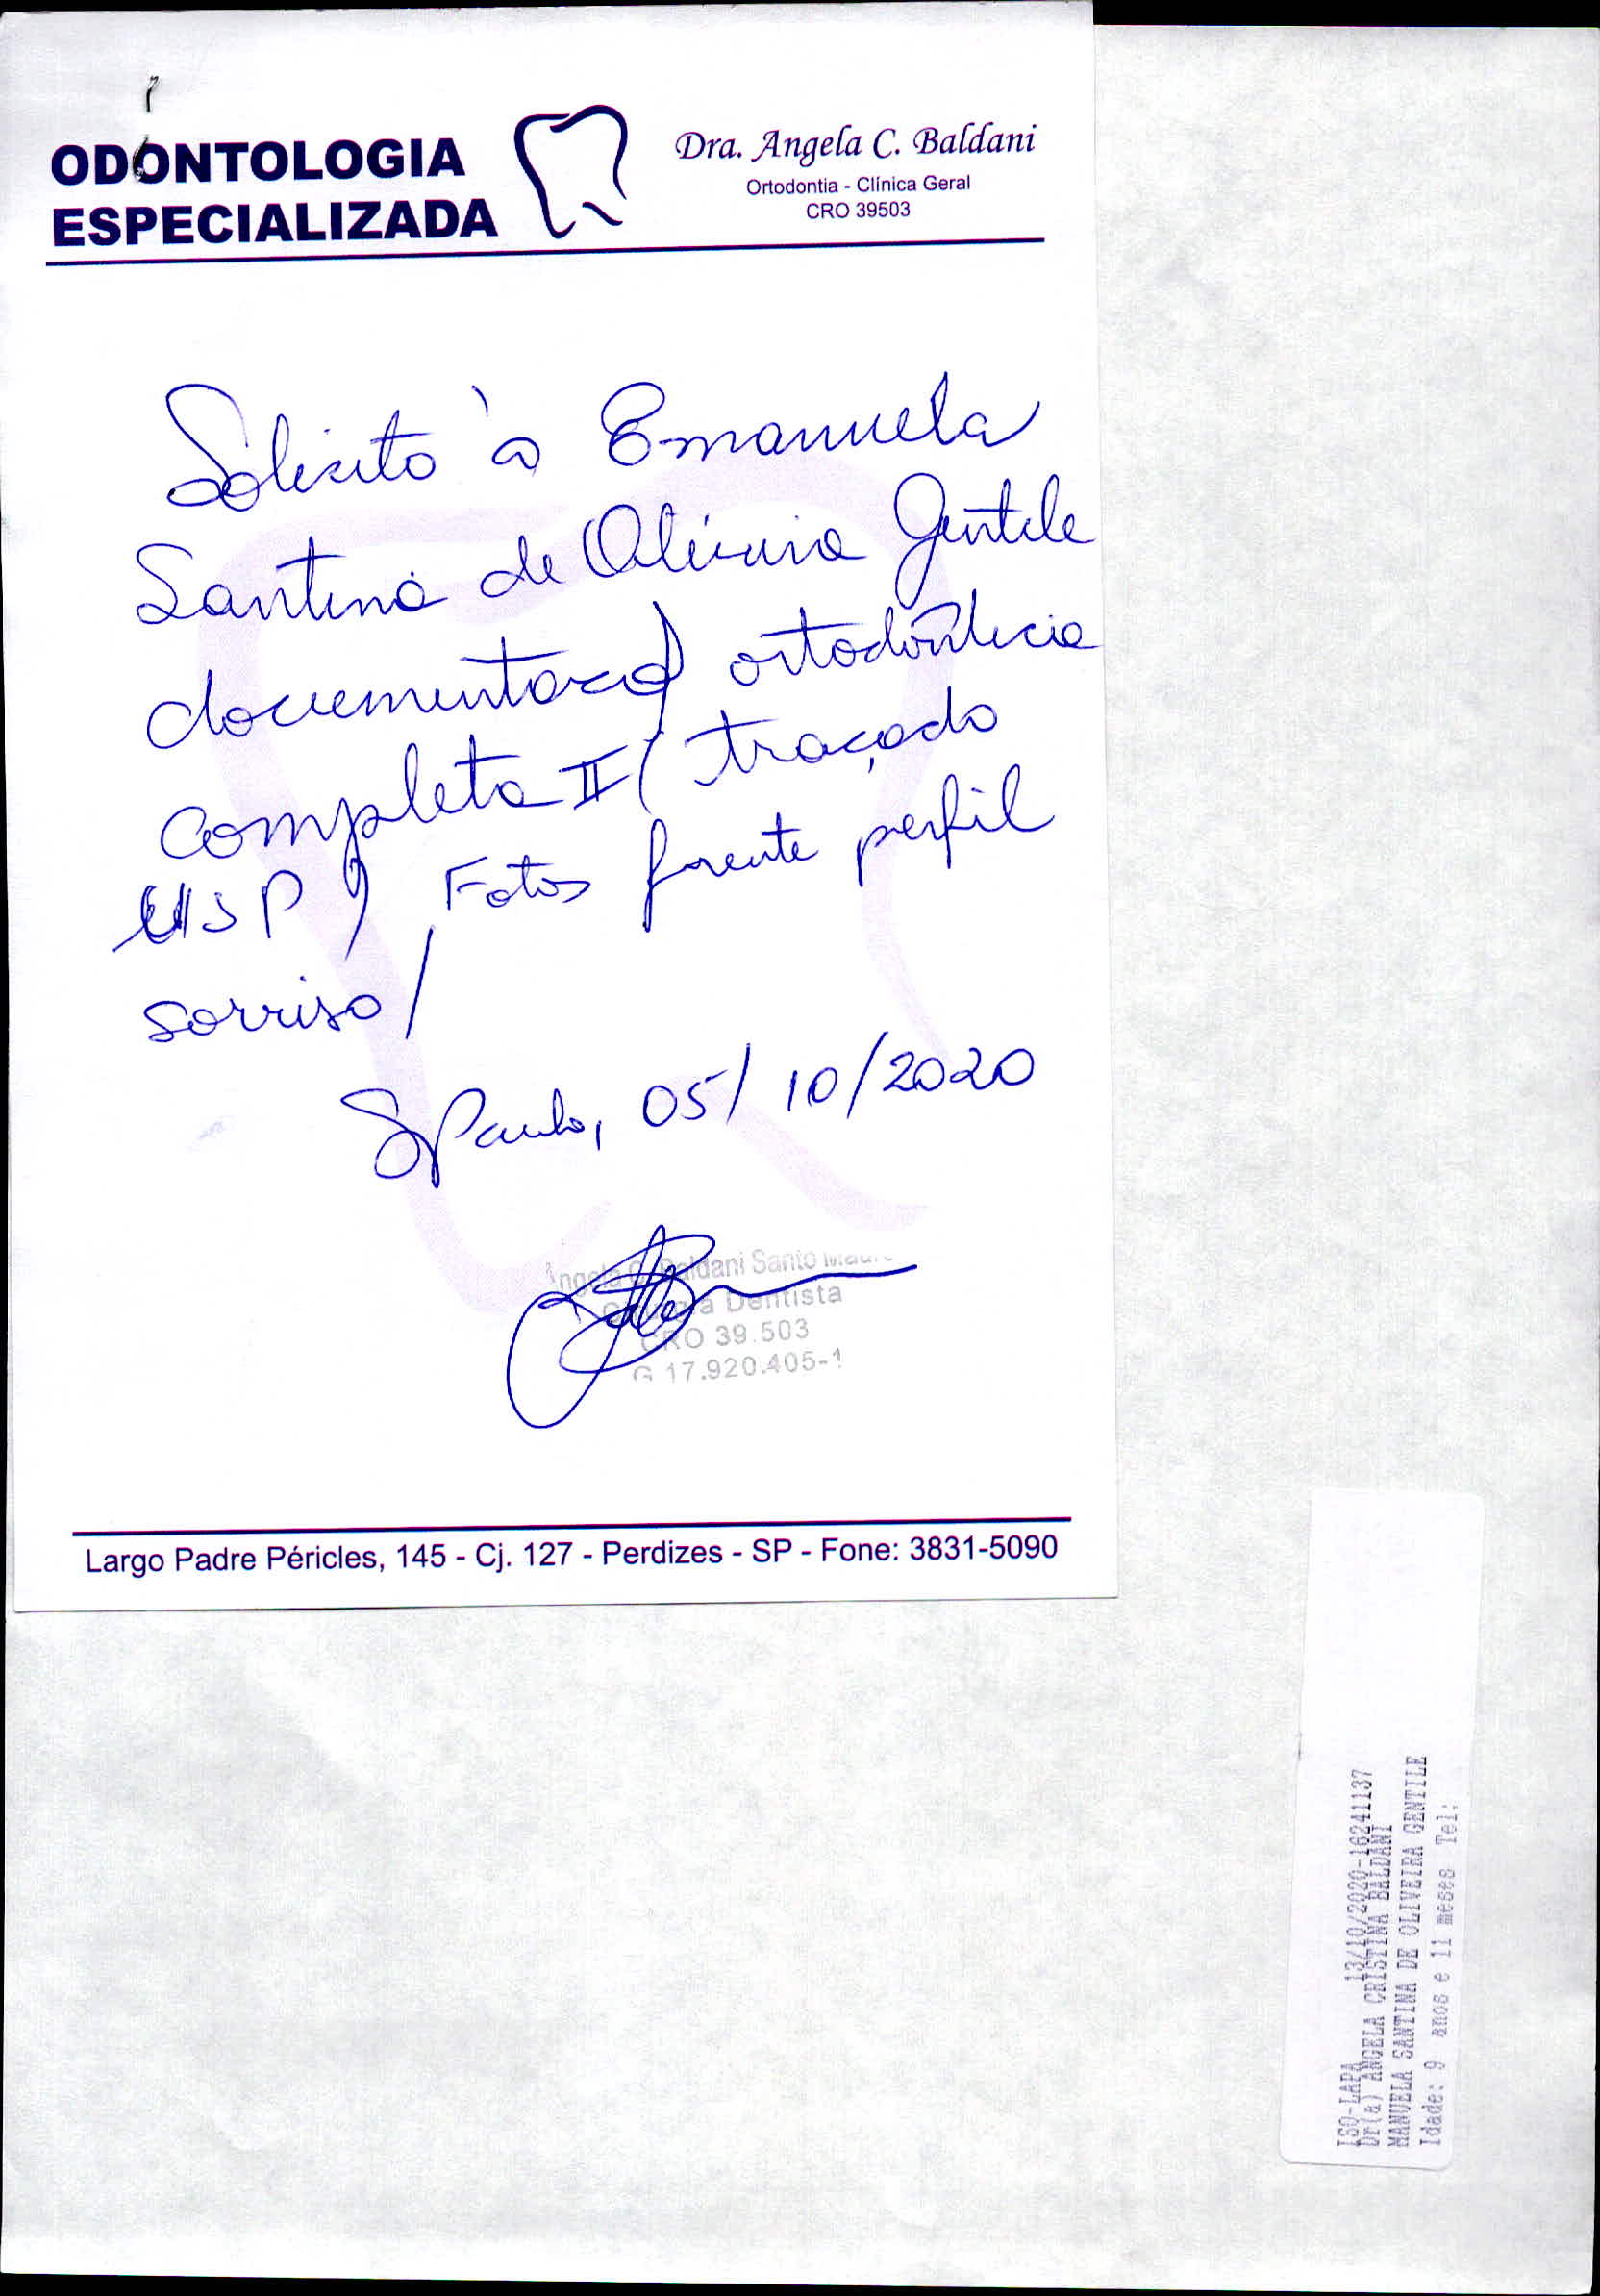 ODONTOLOGIA
ESPECIALIZADA
Dra. Angela C. Baldani
Ortodontia - Clínica Geral
CRO 39503
Solicito à Emanuela
Santina de Oliveira Gentile
documentação ortodôntica
completa II ( traçado
USP ) Fotos frente perfil
sorriso /
S Paulo, 05/10/2020
Angela C. Baldani Santo
Cirurgiã Dentista
CRO 39.503
G 17.920.405-1
Largo Padre Péricles, 145 - Cj. 127 - Perdizes - SP - Fone: 3831-5090
ISO-LAPA 13/10/2020-16241137
Dr(a) ANGELA CRISTINA BALDANI
MANUELA SANTINA DE OLIVEIRA GENTILE
Idade: 9 anos e 11 meses Tel: